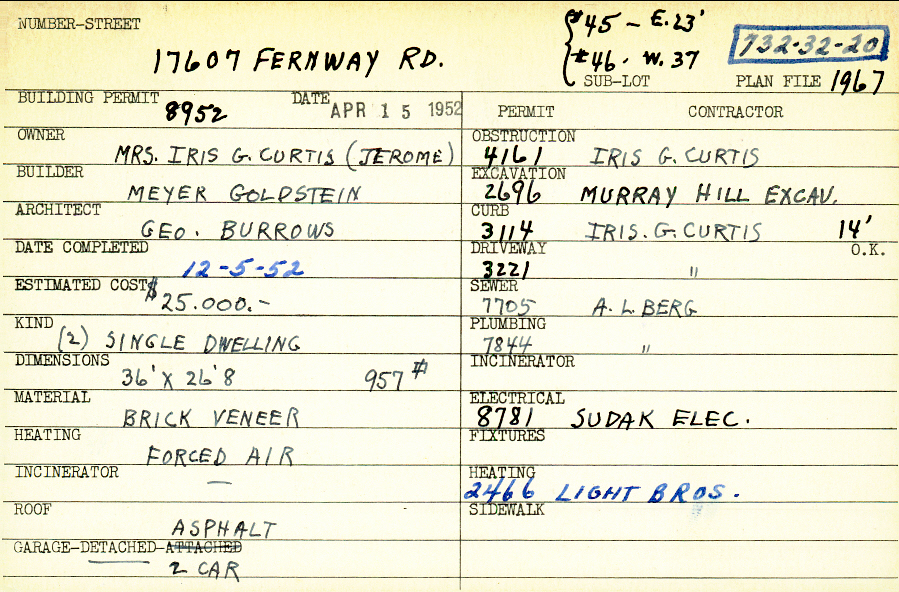 NUMBER-STREET
17607 FERNWAY RD.
#45 - E. 23'
#46. W. 37
SUB-LOT
732-32-20
PLAN FILE 1967
BUILDING PERMIT 8952
DATE APR 15 1952
OWNER MRS. IRIS G. CURTIS (JEROME)
BUILDER MEYER GOLDSTEIN
ARCHITECT GEO. BURROWS
DATE COMPLETED 12-5-52
ESTIMATED COST $25.000.-
KIND (2) SINGLE DWELLING
DIMENSIONS 36' X 26'8 957 #
MATERIAL BRICK VENEER
HEATING FORCED AIR
INCINERATOR —
ROOF ASPHALT
GARAGE-DETACHED-ATTACHED
2 CAR
PERMIT CONTRACTOR
OBSTRUCTION
4161 IRIS G. CURTIS
EXCAVATION
2696 MURRAY HILL EXCAV.
CURB
3114 IRIS. G. CURTIS 14'
DRIVEWAY O.K.
3221 "
SEWER
7705 A. L. BERG
PLUMBING
7844 "
INCINERATOR
ELECTRICAL
8781 SUDAK ELEC.
FIXTURES
HEATING
2466 LIGHT BROS.
SIDEWALK